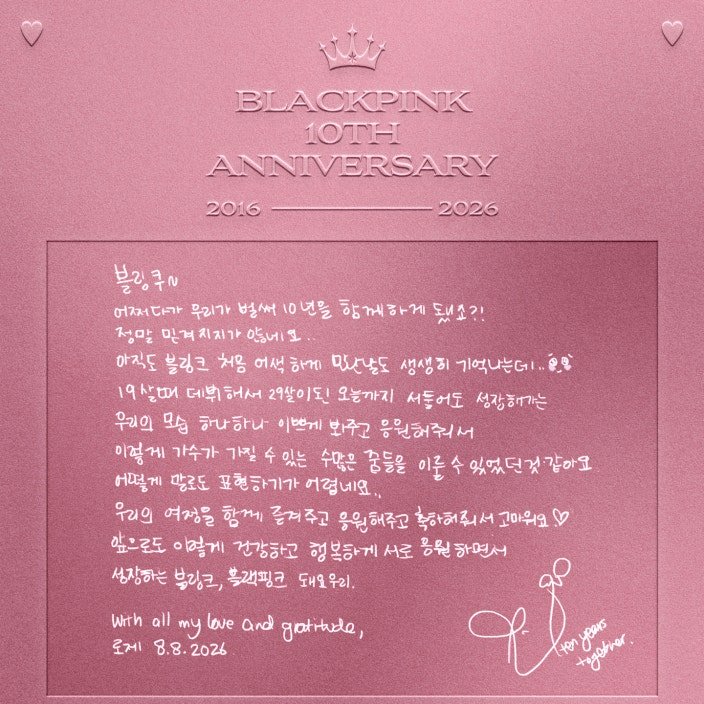 BLACKPINK
10TH
ANNIVERSARY
2016 2026
블링쿠~
어쩌다가 우리가 벌써 10년을 함께하게 됐죠?!
정말 믿겨지지가 않네요..
아직도 블링크 처음 어색하게 만난날도 생생히 기억나는데..
19살때 데뷔해서 29살이 된 오늘까지 서툴어도 성장해가는
우리의 모습 하나하나 이쁘게 봐주고 응원해줘서
이렇게 가수가 가질 수 있는 수많은 꿈들을 이룰 수 있었던것 같아요
어떻게 말로도 표현하기가 어렵네요..
우리의 여정을 함께 즐겨주고 응원해주고 축하해줘서 고마워요♡
앞으로도 이렇게 건강하고 행복하게 서로 응원하면서
성장하는 블링크, 블랙핑크 돼요우리.
With all my love and gratitude,
로제 8.8.2026
ten years
together.